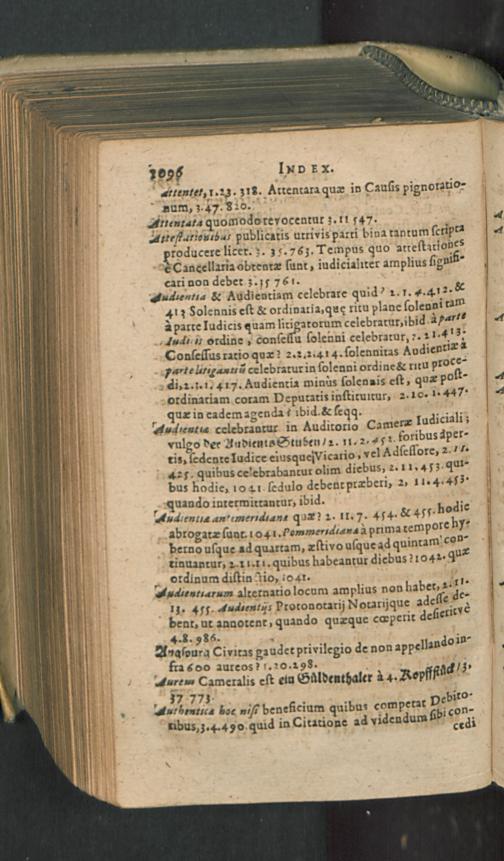 1096 INDEX.
attentet, 1.23. 318. Attentara quæ in Causis pignoratio-
num, 3.47. 820.
Attentata quomodo revocentur 3.11 547.
Attestationibus publicatis utrivis parti bina tantum scripta
producere licet. 3. 35.763. Tempus quo attestationes
è Cancellaria obtentæ sunt, iudicialiter amplius signifi-
cari non debet 3.35 761.
Audientia & Audientiam celebrare quid? 2.1.4.412. &
413 Solennis est & ordinaria, quę ritu plane solenni tam
à parte Iudicis quam litigatorum celebratur, ibid. à parte
Iudicis ordine, consessu solenni celebratur, 2.21.413.
Consessus ratio quæ? 2.2.2.414. solennitas Audientiæ à
parte litigantiũ celebratur in solenni ordine & ritu proce-
di, 2.3.1.417. Audientia minùs solennis est, quæ post-
ordinatiam coram Deputatis instituitur, 2.10.1.447.
quæ in eadem agenda? ibid. & seqq.
Audientiæ celebrantur in Auditorio Cameræ Iudiciali;
vulgo der Audientz Stuben / 2.11.2.452. foribus aper-
tis, sedente Iudice eiusque Vicario, vel Adsessore, 2.11.
425. quibus celebrabantur olim diebus, 2.11,453. qui-
bus hodie, 1041. sedulo debent præberi, 2, 11.4.453.
quando intermittantur, ibid.
Audientiæ antemeridianæ quæ? 2. 11.7. 454. & 455. hodie
abrogatæ sunt. 1041. Pommeridianæ à prima tempore hy-
berno usque ad quartam, æstivo usque ad quintam con-
tinuantur, 2.11.11. quibus habeantur diebus? 1042. quæ
ordinum distinctio, 1041.
Audientiarum alternatio locum amplius non habet, 2.11.
13. 455. Audientijs Protonotarij Notarijque adesse de-
bent, ut annotent, quando quæque cœperit desieritvè
4.8. 986.
Augspurg Civitas gaudet privilegio de non appellando in-
fra 600 aureos? 1.20.298.
Aureus Cameralis est ein Güldenthaler à 4. Kopffstück / 3.
37 773.
Authentica hoc nisi beneficium quibus competat Debito-
ribus, 3.4.490. quid in Citatione ad videndum sibi con-
cedi